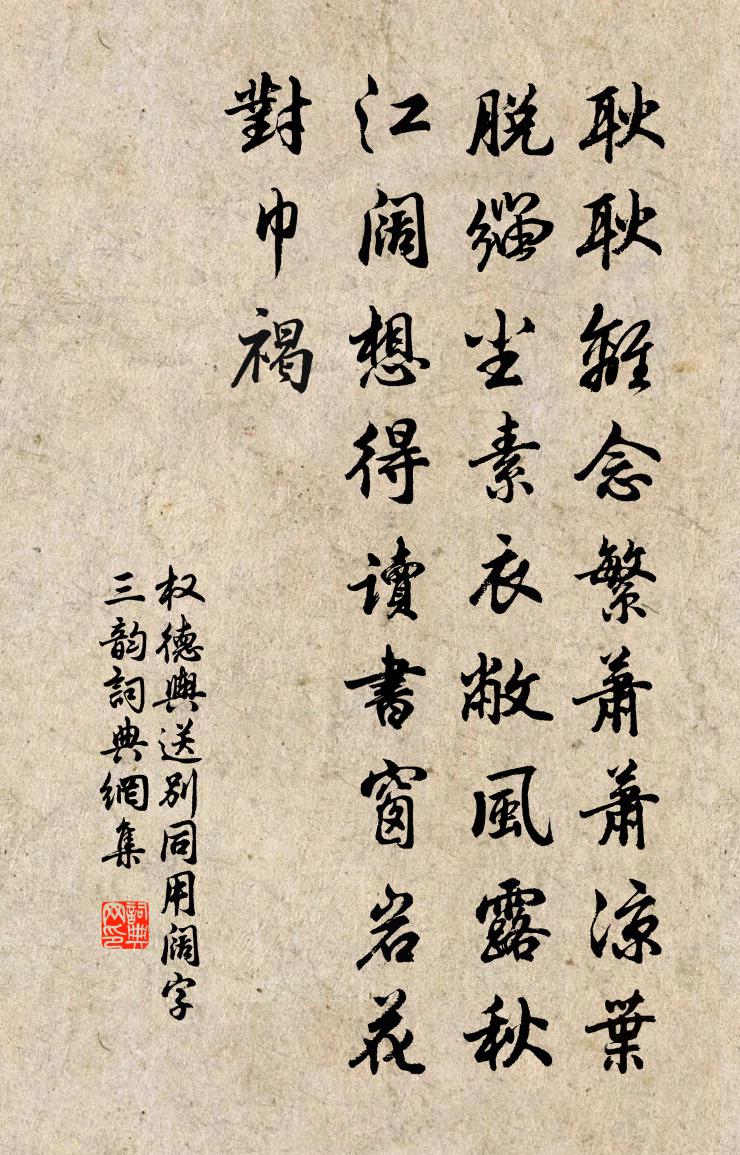 耿耿離念繁蕭蕭涼葉
脱緇尘素衣敝風露秋
江闊想得讀書窗岩花
對巾褐
权德輿送别同用闊字
三韵詞典網集
詞典网印